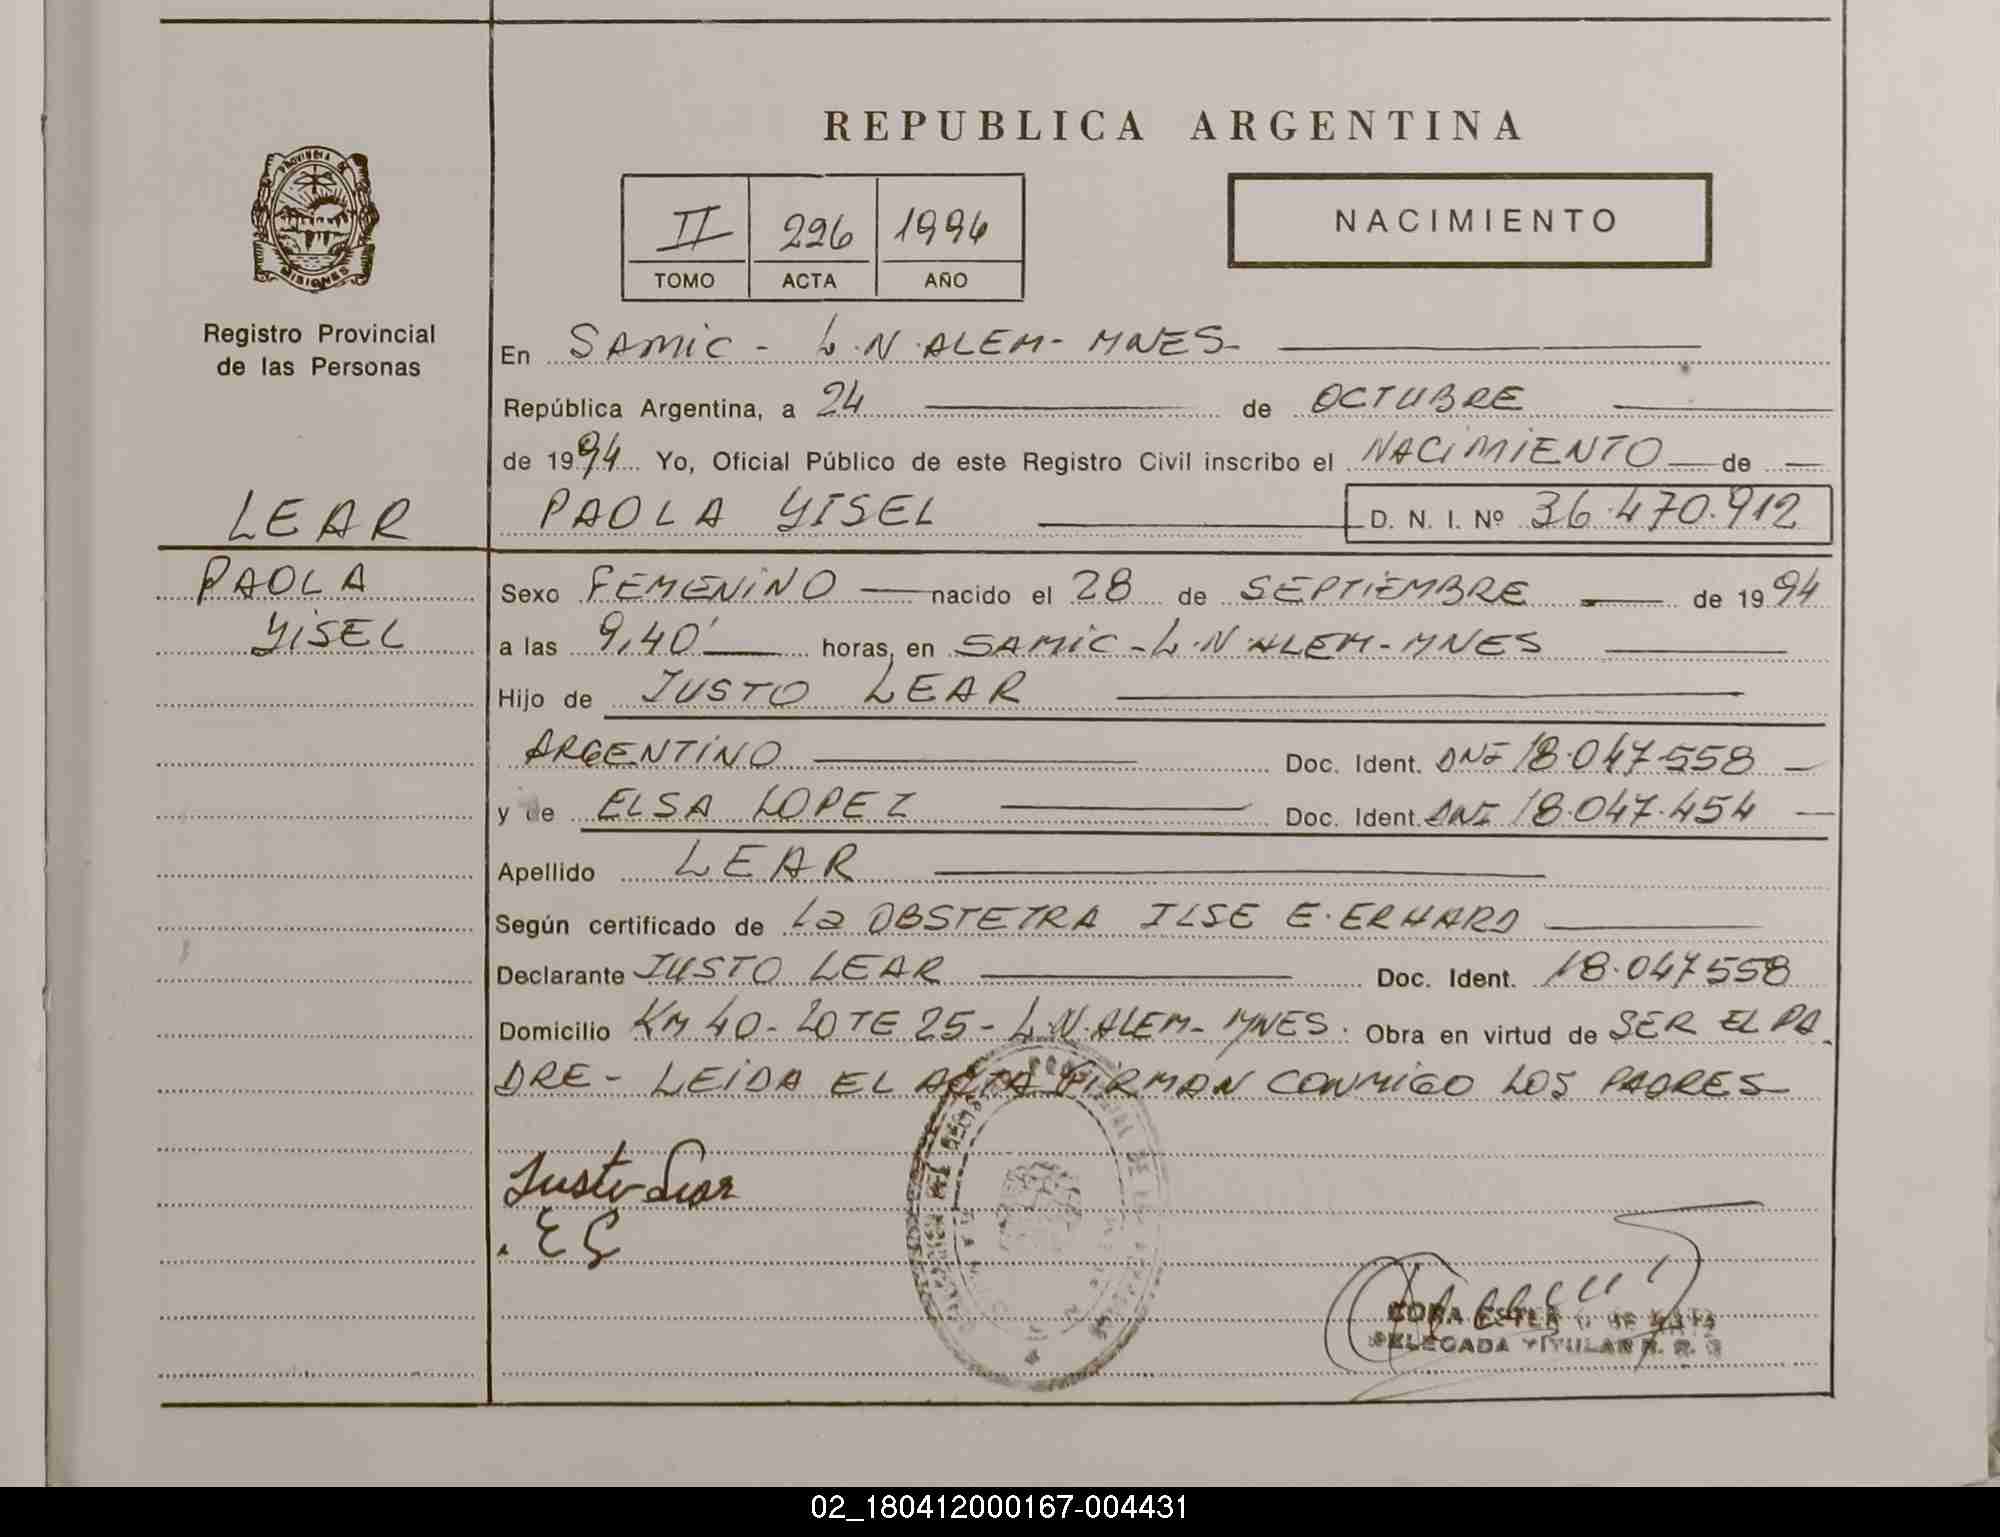 REPUBLICA ARGENTINA
PROVINCIA DE
MISIONES
Registro Provincial
de las Personas
II 226 1994
TOMO ACTA AÑO
NACIMIENTO
En SAMIC - L.N.ALEM-MNES
República Argentina, a 24 de OCTUBRE
de 1994 Yo, Oficial Público de este Registro Civil inscribo el NACIMIENTO de
LEAR
PAOLA YISEL D. N. I. Nº 36.470.912
PAOLA
YISEL
Sexo FEMENINO nacido el 28 de SEPTIEMBRE de 1994
a las 9,40' horas, en SAMIC-L.N.ALEM-MNES
Hijo de JUSTO LEAR
ARGENTINO Doc. Ident. DNI 18.047.558
y de ELSA LOPEZ Doc. Ident. DNI 18.047.454
Apellido LEAR
Según certificado de La OBSTETRA ILSE E. ERHARD
Declarante JUSTO LEAR Doc. Ident. 18.047558
Domicilio KM 40-LOTE 25-L.N.ALEM-MNES. Obra en virtud de SER EL PA
DRE - LEIDA EL ACTA FIRMAN CONMIGO LOS PADRES
Justo Lear
.E L
ESTER
DELEGADA TITULAR R. R.
02_180412000167-004431